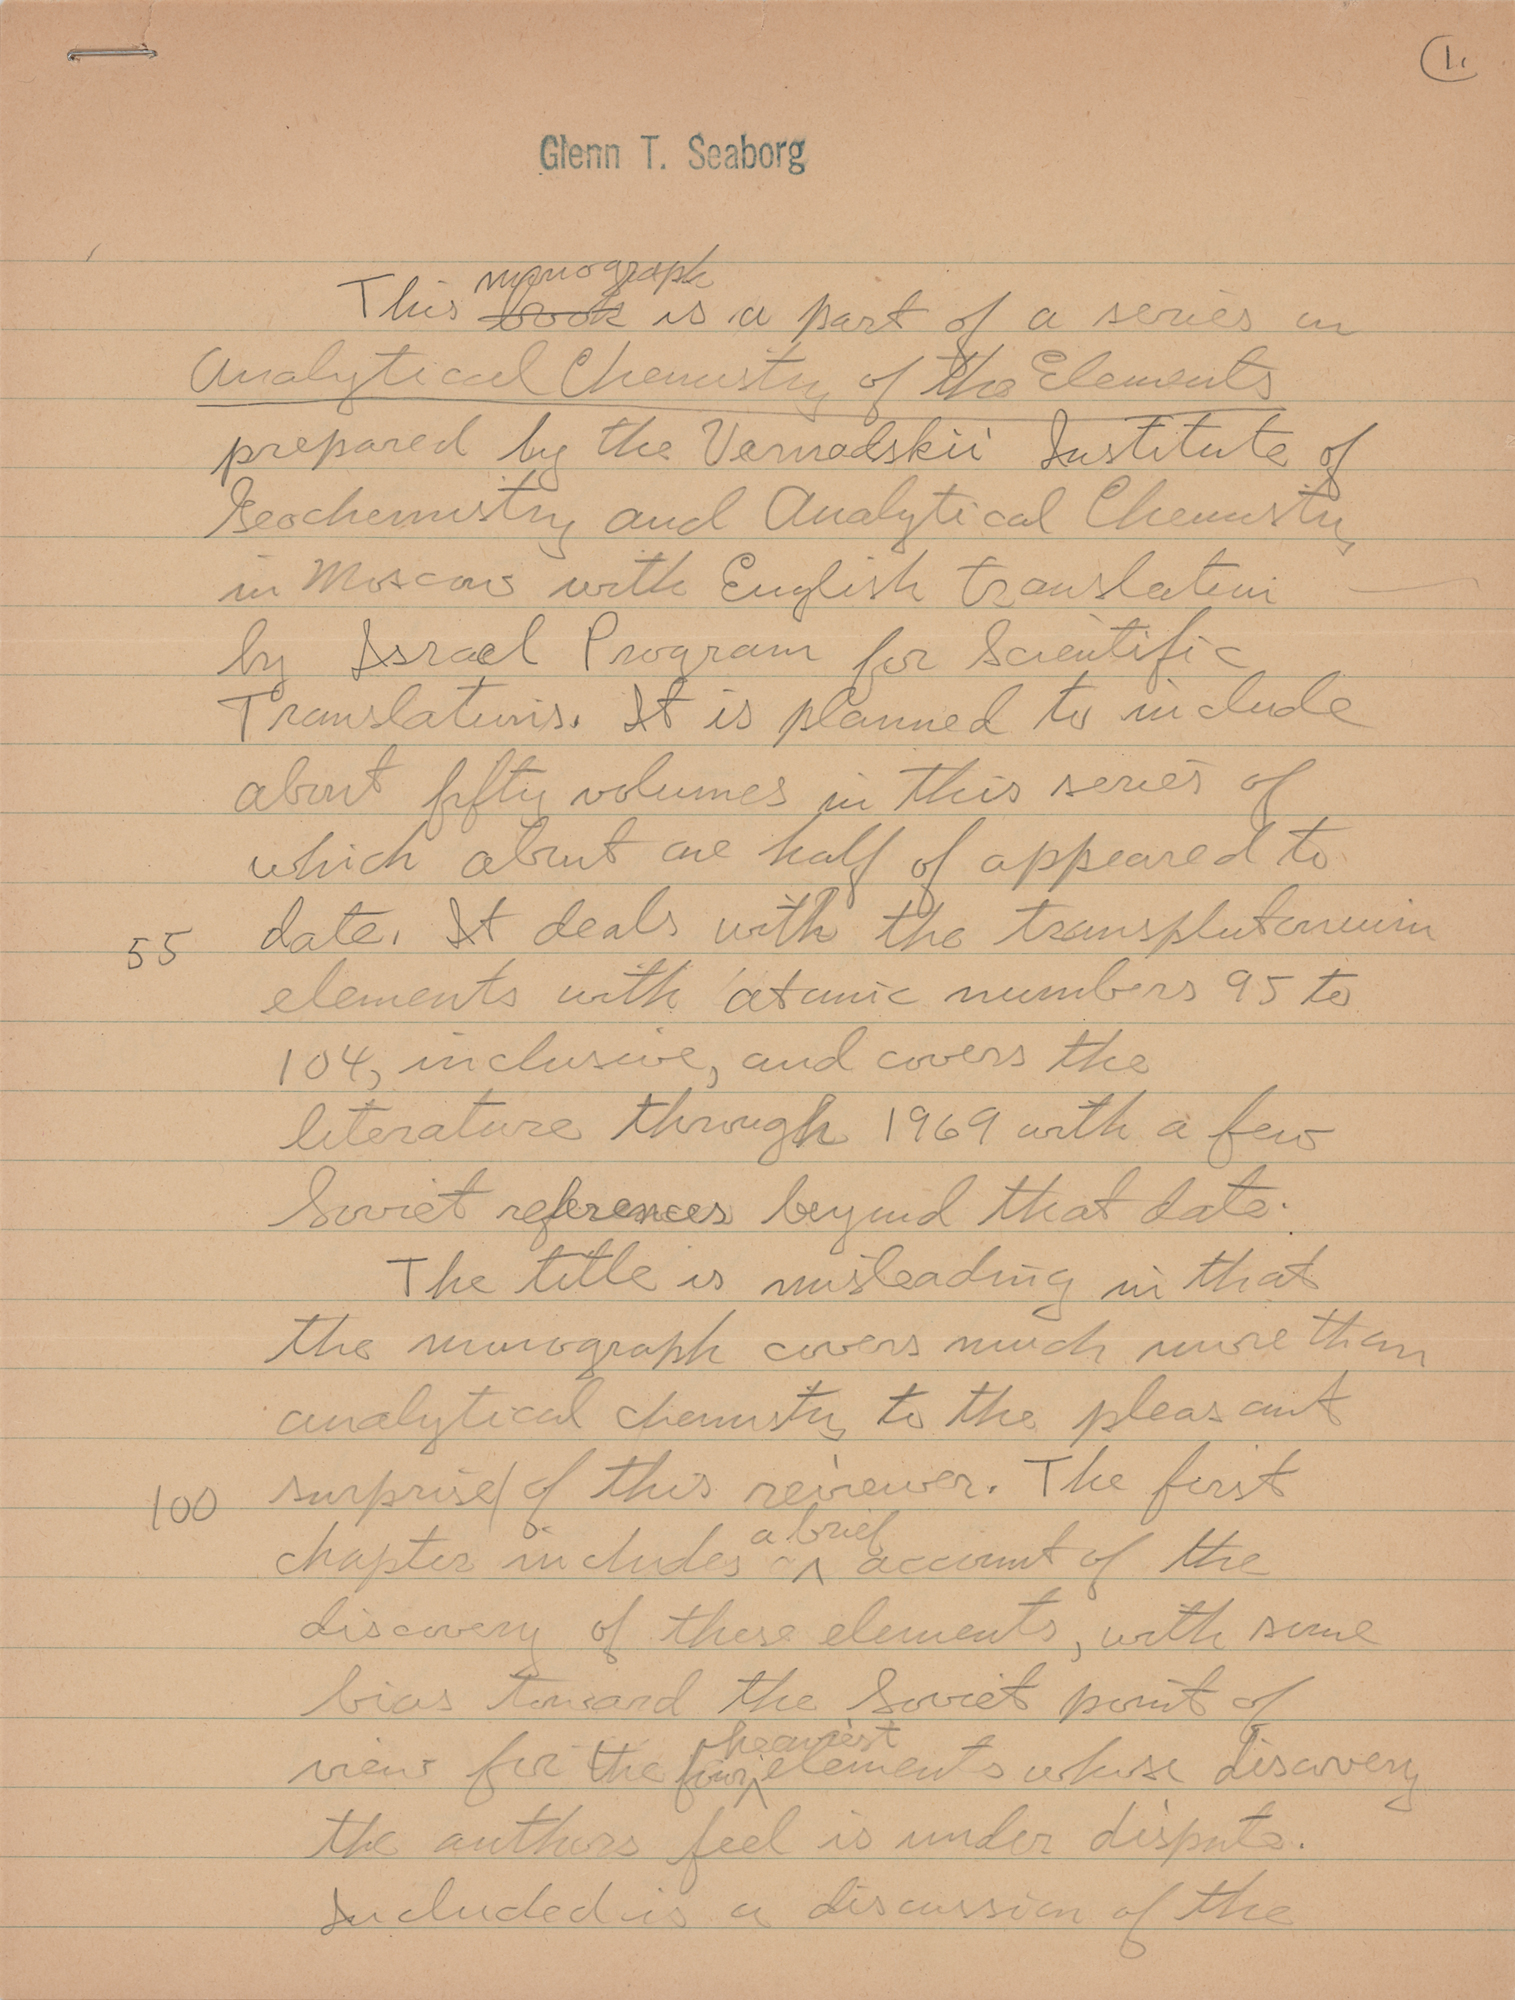 1.
Glenn T. Seaborg
monograph
This book is a part of a series on
Analytical Chemistry of the Elements
prepared by the Vernadskii Institute of
Geochemistry and Analytical Chemistry
in Moscow with English translation
by Israel Program for Scientific
Translations. It is planned to include
about fifty volumes in this series of
which about one half of appeared to
55 date. It deals with the transplutonium
elements with atomic numbers 95 to
104, inclusive, and covers the
literature through 1969 with a few
Soviet references beyond that date.
The title is misleading in that
the monograph covers much more than
analytical chemistry to the pleasant
100 surprise of this reviewer. The first
a brief
chapter includes account of the
discovery of these elements, with some
bias toward the Soviet point of
heaviest
view for the four elements whose discovery
the authors feel is under dispute.
Included is a discussion of the